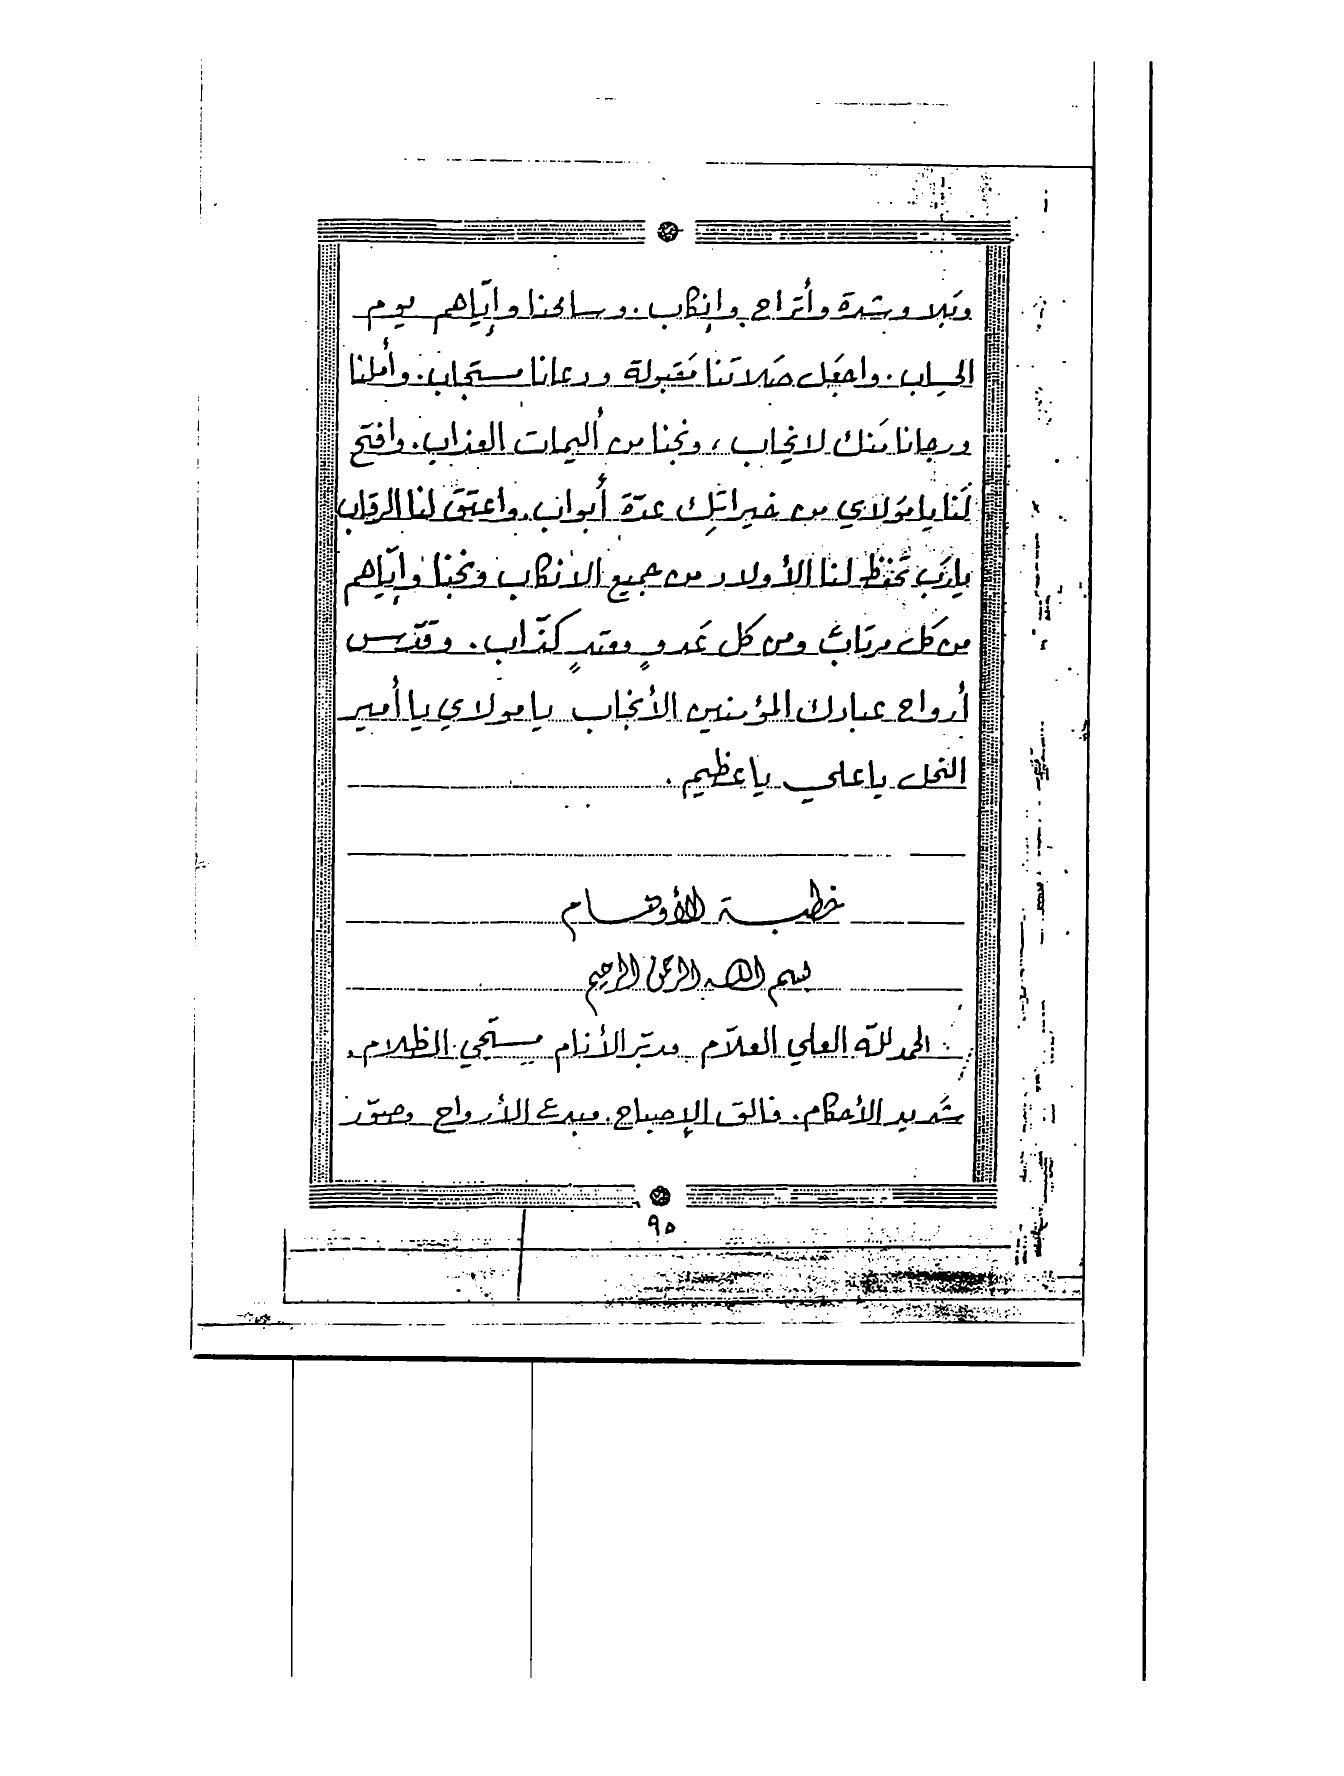 وبَلا وشدة وأتراح وإنكاب. وسامحنا وإيّاهم يوم
الحساب. واجعَل صَلاتَنا مَقبولة ودعانا مستجاب. وأملنا
ورجانا مَنك لا يخاب، ونجنا من أليمات العذاب. وافتح
لَنا يا مَولاي من خيراتِك عدّة أبواب. واعتق لنا الرقاب
يا رَب تحفظ لنا الأولاد من جميع الانكاب ونجنا وإيّاهم
من كل مرتابٍ ومن كل عَدوٍ ومعتدٍ كذّاب. وقدّس
أرواح عبادك المؤمنين الأنجاب يا مولاي يا أمير
النحل يا علي يا عظيم.
خطبة الأوهام
بسم الله الرحمن الرحيم
الحمد للّه العلي العلّام مدبّر الأنام الظلام.
شديد الأحكام. فالق الإصباح. مبدع الأرواح وصوّر
٩٥